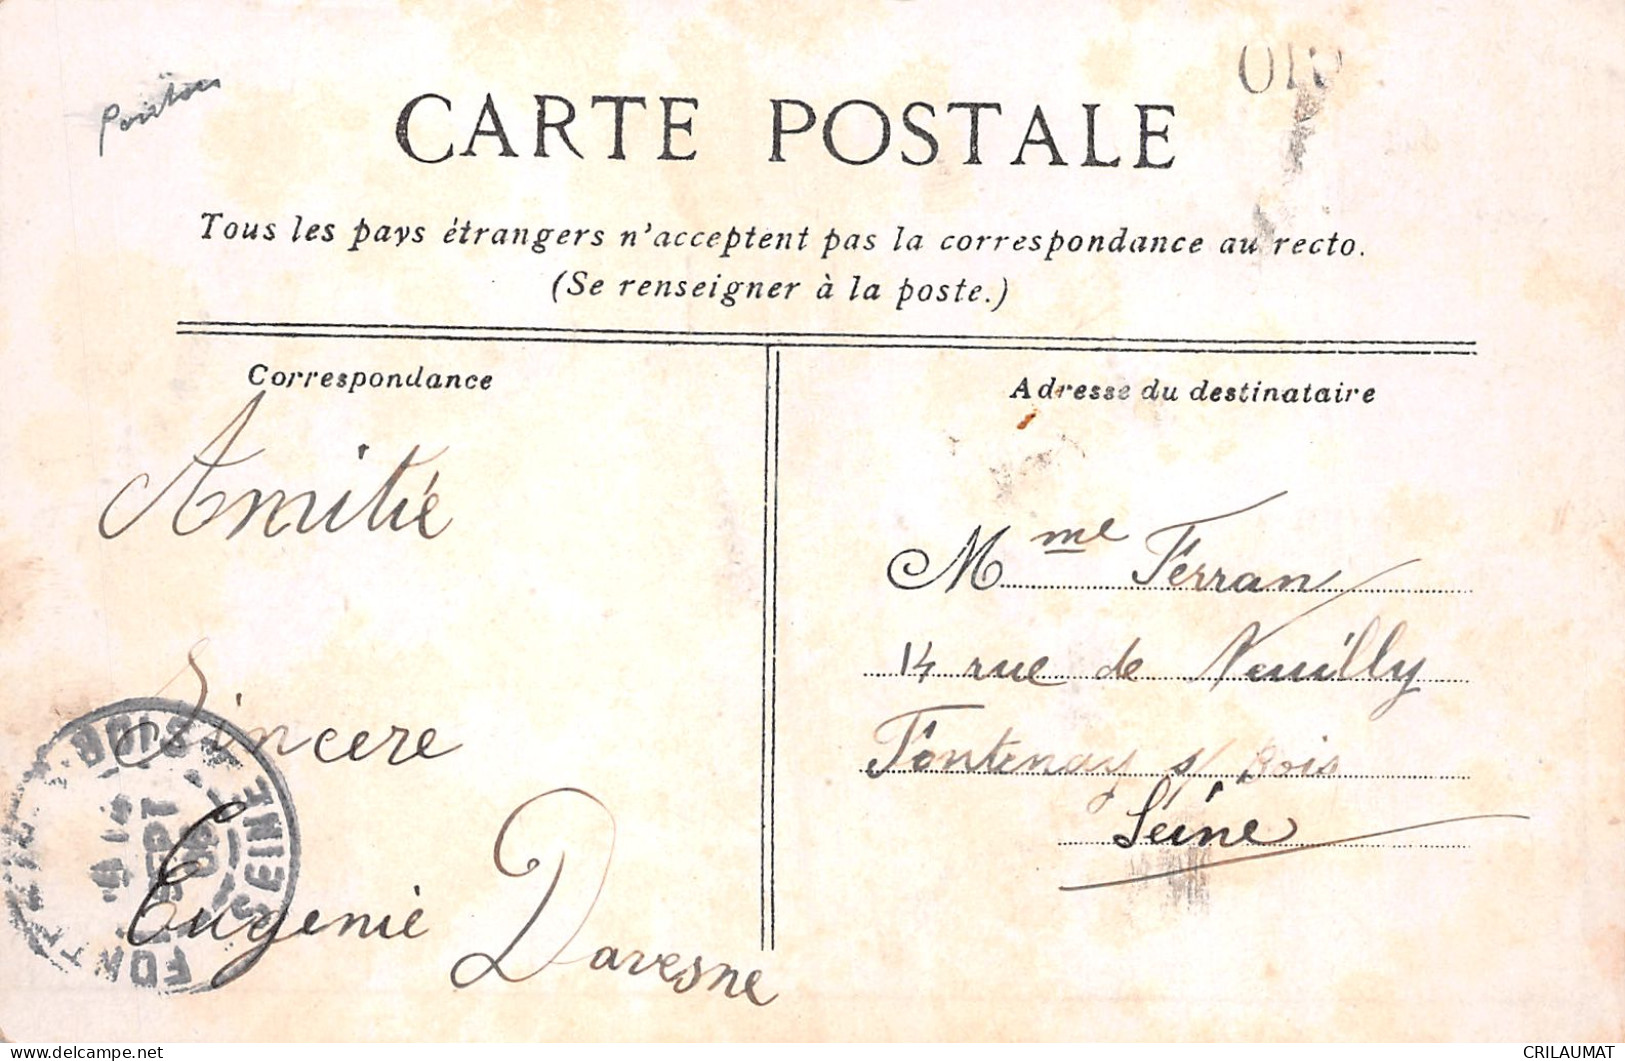 CARTE POSTALE
Tous les pays étrangers n'acceptent pas la correspondance au recto.
(Se renseigner à la poste.)
Correspondance
Adresse du destinataire
Amitié
Sincere
Eugenie Davesne
Mme Ferran
14 rue de Neuilly
Fontenay s/ Bois
Seine
BOIS SEINE
SEPT
www.delcampe.net
CRILAUMAT